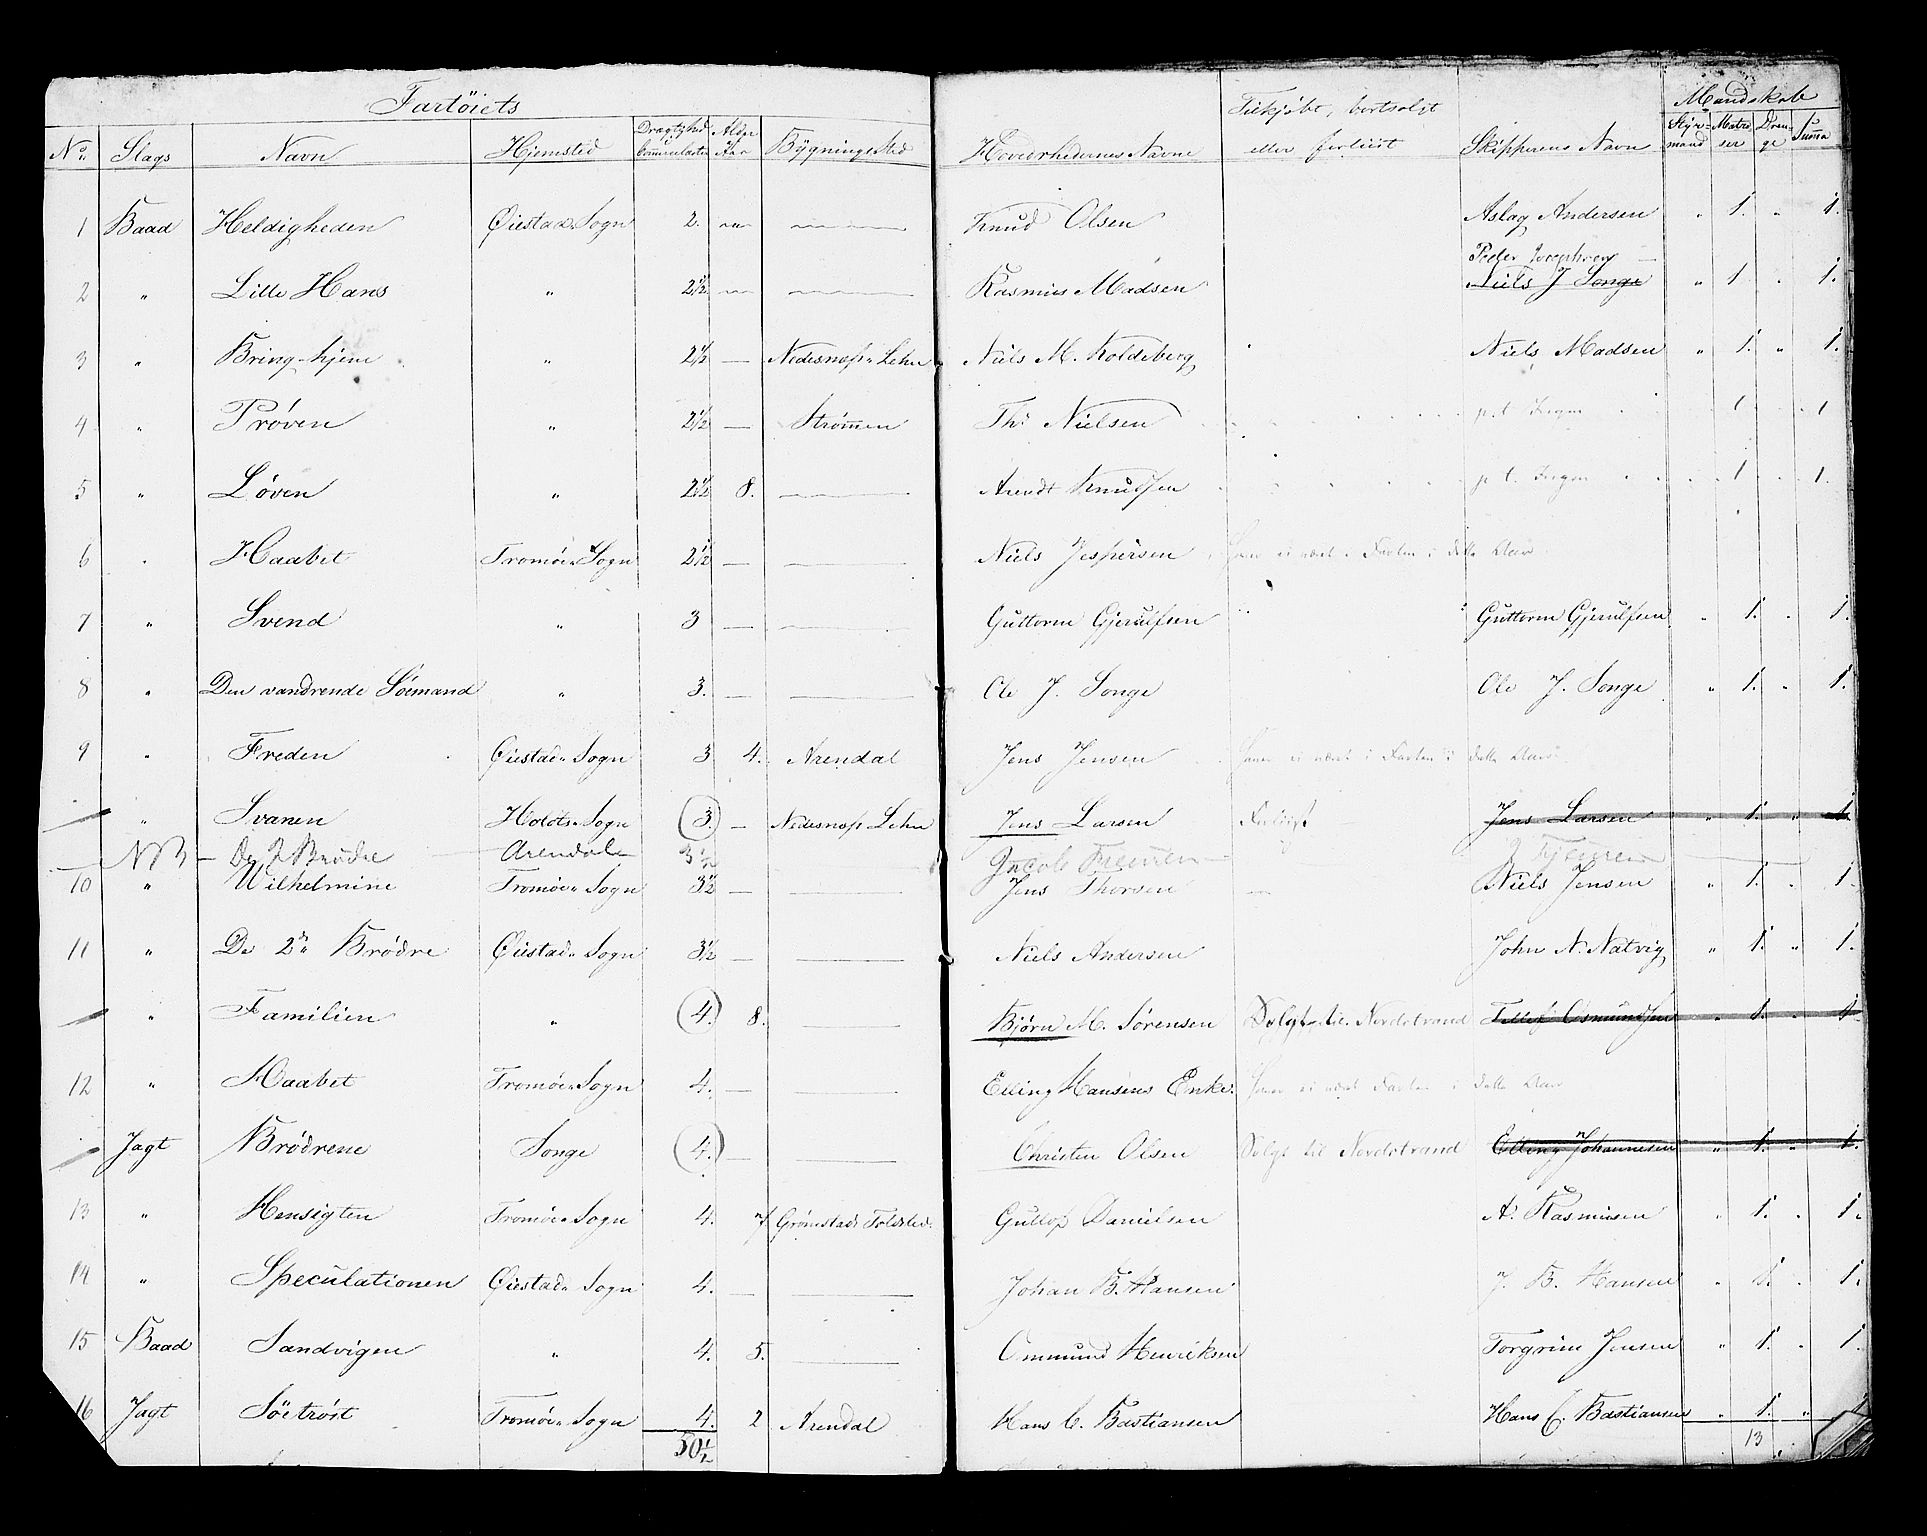 Fartöiets
Tilkjøbt, bortsolgt
Mandskab
No. Slags Navn Hjemsted Drægtighed Commerselæster Alder Aar Bÿgnings Sted Hovedrhedernes Navne eller forliist Skipperens Navn Stÿrmand Matroser Drenge Suma
1 Baad Heldigheden Öiestads Sogn 2. Knud Olsen Aslag Andersen " 1. " 1.
Peder
2 " Lille Hans " 2½ Rasmus Madsen Niels J Songe " 1 . 1.
3 " Bring-hjem " 2½ — Nedesnæs Lehn Niels M. Koldeberg Niels Madsen " 1. " 1.
4 " Prøven " 2½ — Strömen Ths Nielsen p.t. Ingen 1 1
5 " Løven " 2½ 8. Arendt Knudsen p.t. Ingen 1 1.
6 " Haabet Tromöe Sogn 2½ — Niels Jespersen haver ei været i Farten i dette Aar
7 " Svend " 3 — Guttorm Gjerulfsen Guttorm Gjerulfsen " 1. " 1.
8 " Den vandrende Söemand " 3. — Ole J. Songe Ole J. Songe " 1. " 1.
9 " Freden Öiestads Sogn 3 4. Arendal Jens Jensen haver ei været i Farten i dette Aar
" Svanen Holdts Sogn 3. — Nedesnæs Lehn Jens Larsen Forliist Jens Larsen " 1. " 1.
NB — De 2 Brødre — Arendal 3½ Jacob
10 " Wilhelmine Tromöe Sogn 3½ — Jens Thorsen Niels Jensen " 1. " 1.
11 " De 2de Brödre Öiestads Sogn 3½ — Niels Andersen John N. Natvig " 1. " 1.
" Familien " 4. 8. Bjørn M. Sörensen Solgt til Nordstrand Tellef Osmundsen " 1. " 1
12 " Haabet Tromöe Sogn 4. — Elling Hansens Enke. haver ei været i Farten i dette Aar
Jagt Brödrene Songe 4. — Christen Olsen Solgt til Nordstrand Elling Johannesen " 1. " 1.
13 " Hensigten Tromöe Sogn 4. 7. Grömstads Toldsted. Gullof Danielsen A. Rasmusen " 1. " 1.
14 " Speculationen Öiestads Sogn 4. — Johan B. Hansen J. B. Hansen " 1. " 1.
15 Baad Sandvigen " 4. 5. Ommund Henriksen Torgrim Jensen " 1. " 1.
16 Jagt Söetröst Tromöe Sogn 4. 2 Arendal Hans C. Bastiansen Hans C. Bastiansen " 1. " 1
50½ 13